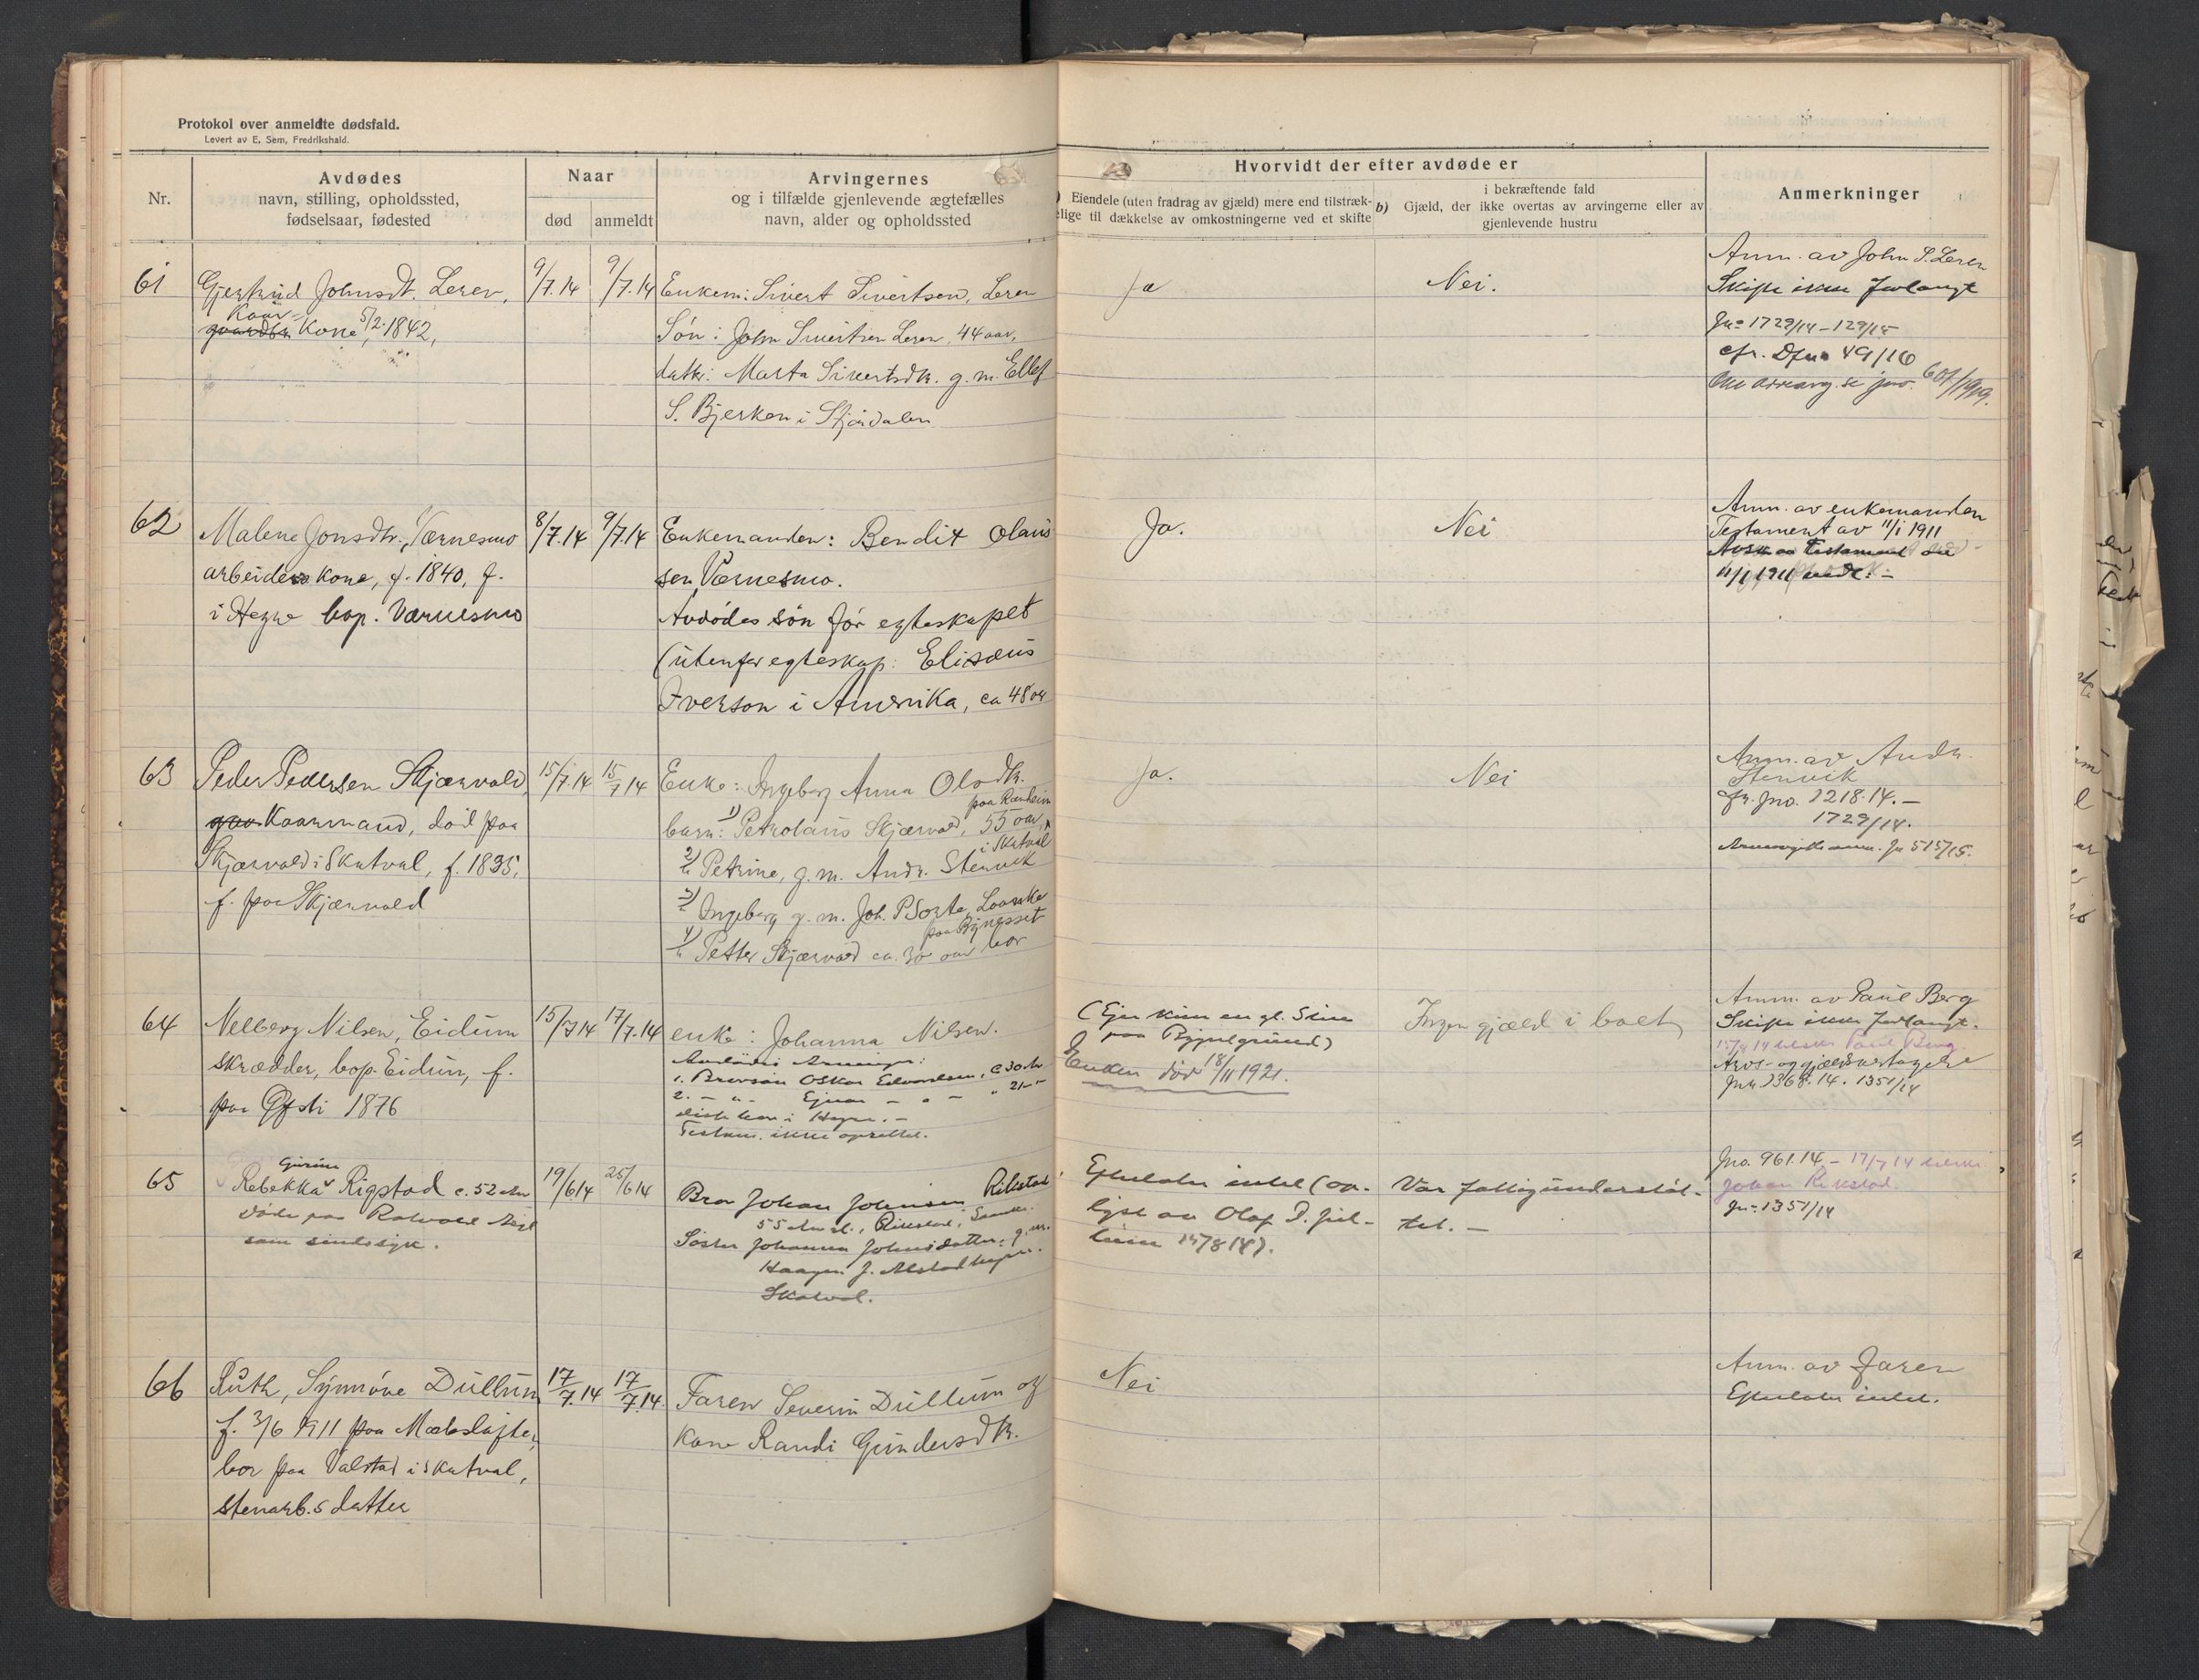 Protokol over anmeldte dødsfald.
Levert av E. Sem, Fredrikshald.
Nr.
Avdødes
navn, stilling, opholdssted,
fødselsaar, fødested
Naar
død
anmeldt
Arvingernes
og i tilfælde gjenlevende ægtefælles
navn, alder og opholdssted
Hvorvidt der efter avdøde er
Eiendele (uten fradrag av gjæld) mere end tilstræk-
elige til dækkelse av omkostningerne ved et skifte
b)
i bekræftende fald
Gjæld, der ikke overtas av arvingerne eller av
gjenlevende hustru
Anmerkninger
61
Gjertrud Johnsdt. Leren,
Kaar-
Kone, 5/2.1842,
9/7.14
9/7.14
Enkem: Sivert Sivertsen, Leren
Søn: John Sivertsen Leren, 44 aar,
datter: Marta Sivertsdtr. g. m. Ellef
S. Bjerken i Stjørdalen
ja
Nei.
Anm. av John S. Leren
Skifte ikke forlangt
Jno 1729/14 - 129/15
cfr. Dfno 49/16
se jno. 601/1919.
62
Malene Jonsdtr. Værnesmo
arbeiders kone, f. 1840, f.
i Hegre bop. Værnesmo
8/7.14
9/7.14
Enkemanden: Bendix Olaus
sen Værnesmo.
Avdødes søn før egteskapet
(utenfor egteskap: Elisæus
Iverson i Amerika, ca 48 aar
Ja.
Nei
Anm. av enkemanden
Testament av 11/1 1911
11/1 1911
63
Peder Pedersen Skjærvold
Kaarmand, død paa
Skjærvold i Skatval, f. 1835,
f. paa Skjærvold
15/7.14
15/7 14
Enke: Ingeborg Anna Olsdtr.
barn: 1) Petrolaus Skjærvold, 55 aar, paa Ranheim
2) Petrine, g. m. Andr. Stenvik i Skatval
3) Ingeborg g. m. Joh. P. Sorte, Laanke
4) Petter Skjærvold ca. 30 aar bor paa Bynesset
Ja.
Nei
Anm. av Andr.
Stenvik
cfr. Jno. 1218.14. -
1729/14.
Jno 515/15.
64
Nelberg Nilsen, Eidum
skrædder, bop. Eidum, f.
paa Øfsti 1876
15/7 14
17/7.14
enke: Johanna Nilsen.
Avdødes Arvinger:
1. Brorsøn Oskar Edvardsen, c 30 år
2. - " - Ejnar - " - " 21 - "
i Hegre. -
Testam. ikke oprettet.
(Ejer kun en gl. Stue
paa Bygselgrund)
Enken død 18/11 1921.
Ingen gjæld i boet
Anm. av Paul Berg
Skifte ikke forlangt.
Paul Berg
Arvs- og gjældsvertagelse
Jno 1368.14. 1351/14
65
Gurine
Rebekka Rigstad c. 52 aar
døde paa Rotvold Asyl
som sindssyk.
19/6.14
25/6 14
Bror Johan Johnsen Rikstad
55 aar
Søster Johanna Johnsdatter g. m.
Haagen J. Alstad
Skatval.
Efterlater intet (op-
lyst av Olaf P.
15/8 14).
Var fattigunderstøt-
tet. -
Jno. 961.14 - 17/7 14
Johan Rikstad.
Jno 1351/14
66
Ruth, Synnøve Dullum
f. 3/6 1911 paa
bor paa Valstad i Skatval,
stenarb.s datter
17/7.14
17/7.14.
Faren Severin Dullum og
Kone Randi Gundersdtr.
Nei
Anm. av Faren
Efterlater intet.